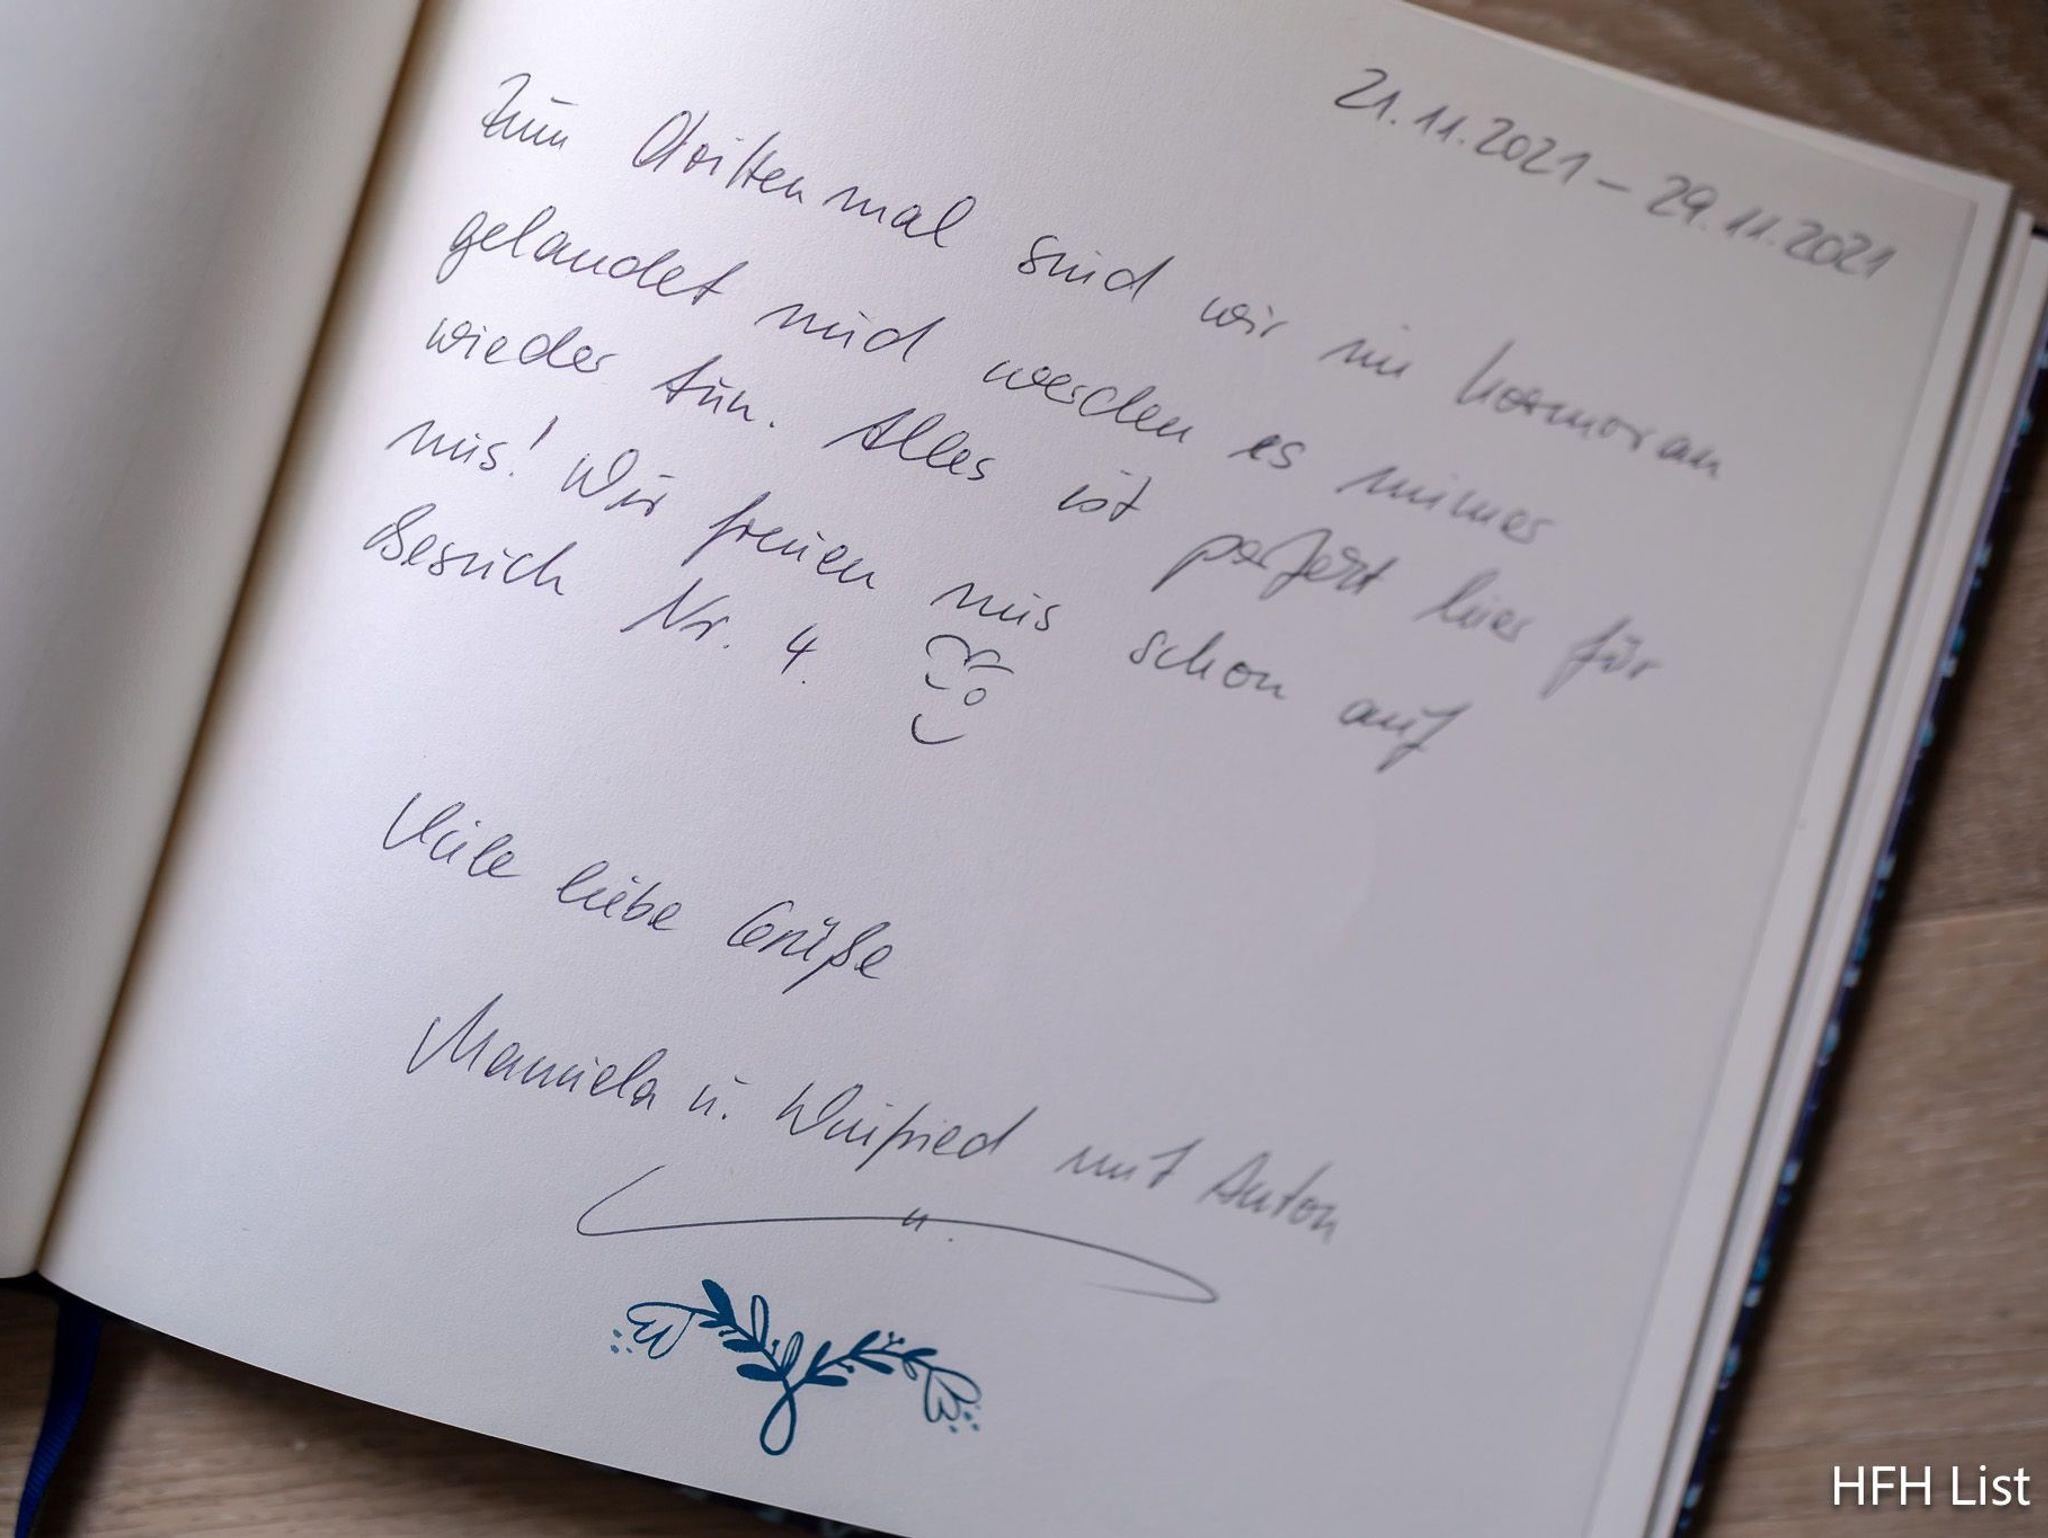 21.11.2021 – 29.11.2021
Zum Dritten mal sind wir im Kormoran
gelandet und werden es immer
wieder tun. Alles ist perfekt hier für
uns! Wir freuen uns schon auf
Besuch Nr. 4.
Viele liebe Grüße
Manuela u. Winfried mit Anton
HFH List